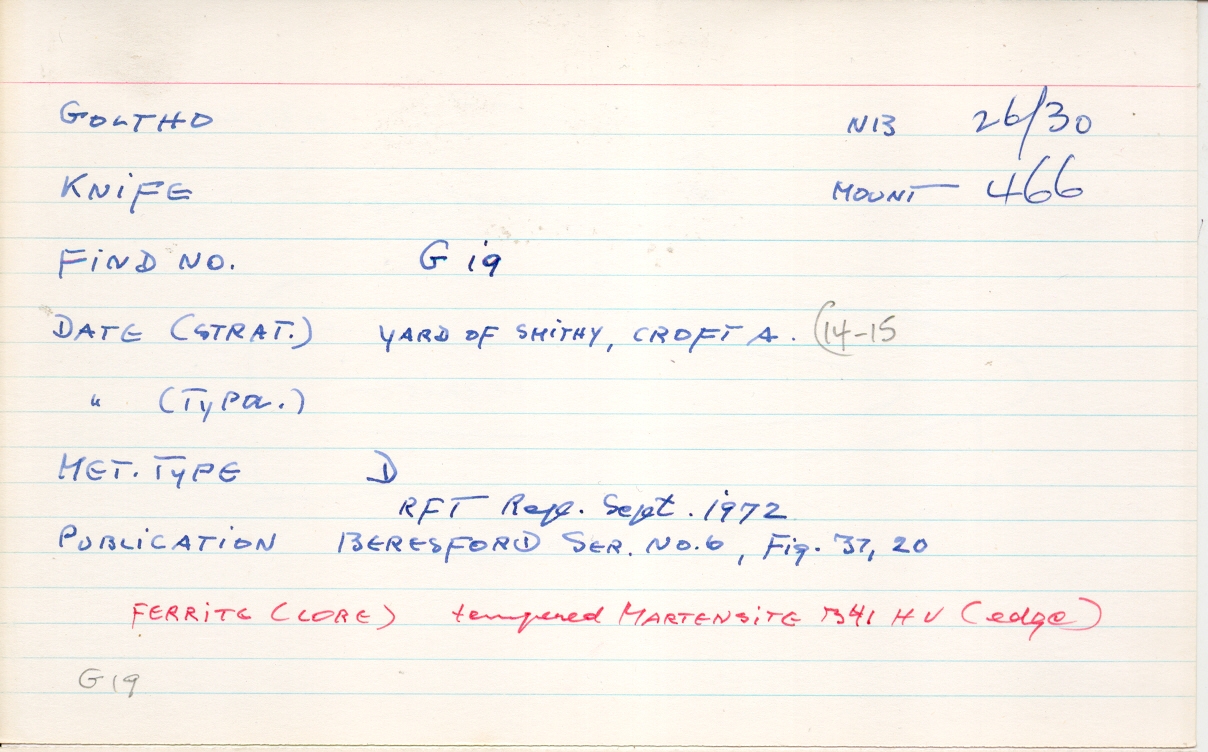 GOLTHO NB 26/30
KNIFE MOUNT 466
FIND NO. G 19
DATE (STRAT.) YARD OF SMITHY, CROFT A. (14-15
" (TYPOL.)
MET. TYPE D
RFT Rep. Sept. 1972
PUBLICATION BERESFORD SER. NO. 6, Fig. 37, 20
FERRITE (CORE) tempered MARTENSITE 341 HV (edge)
G19